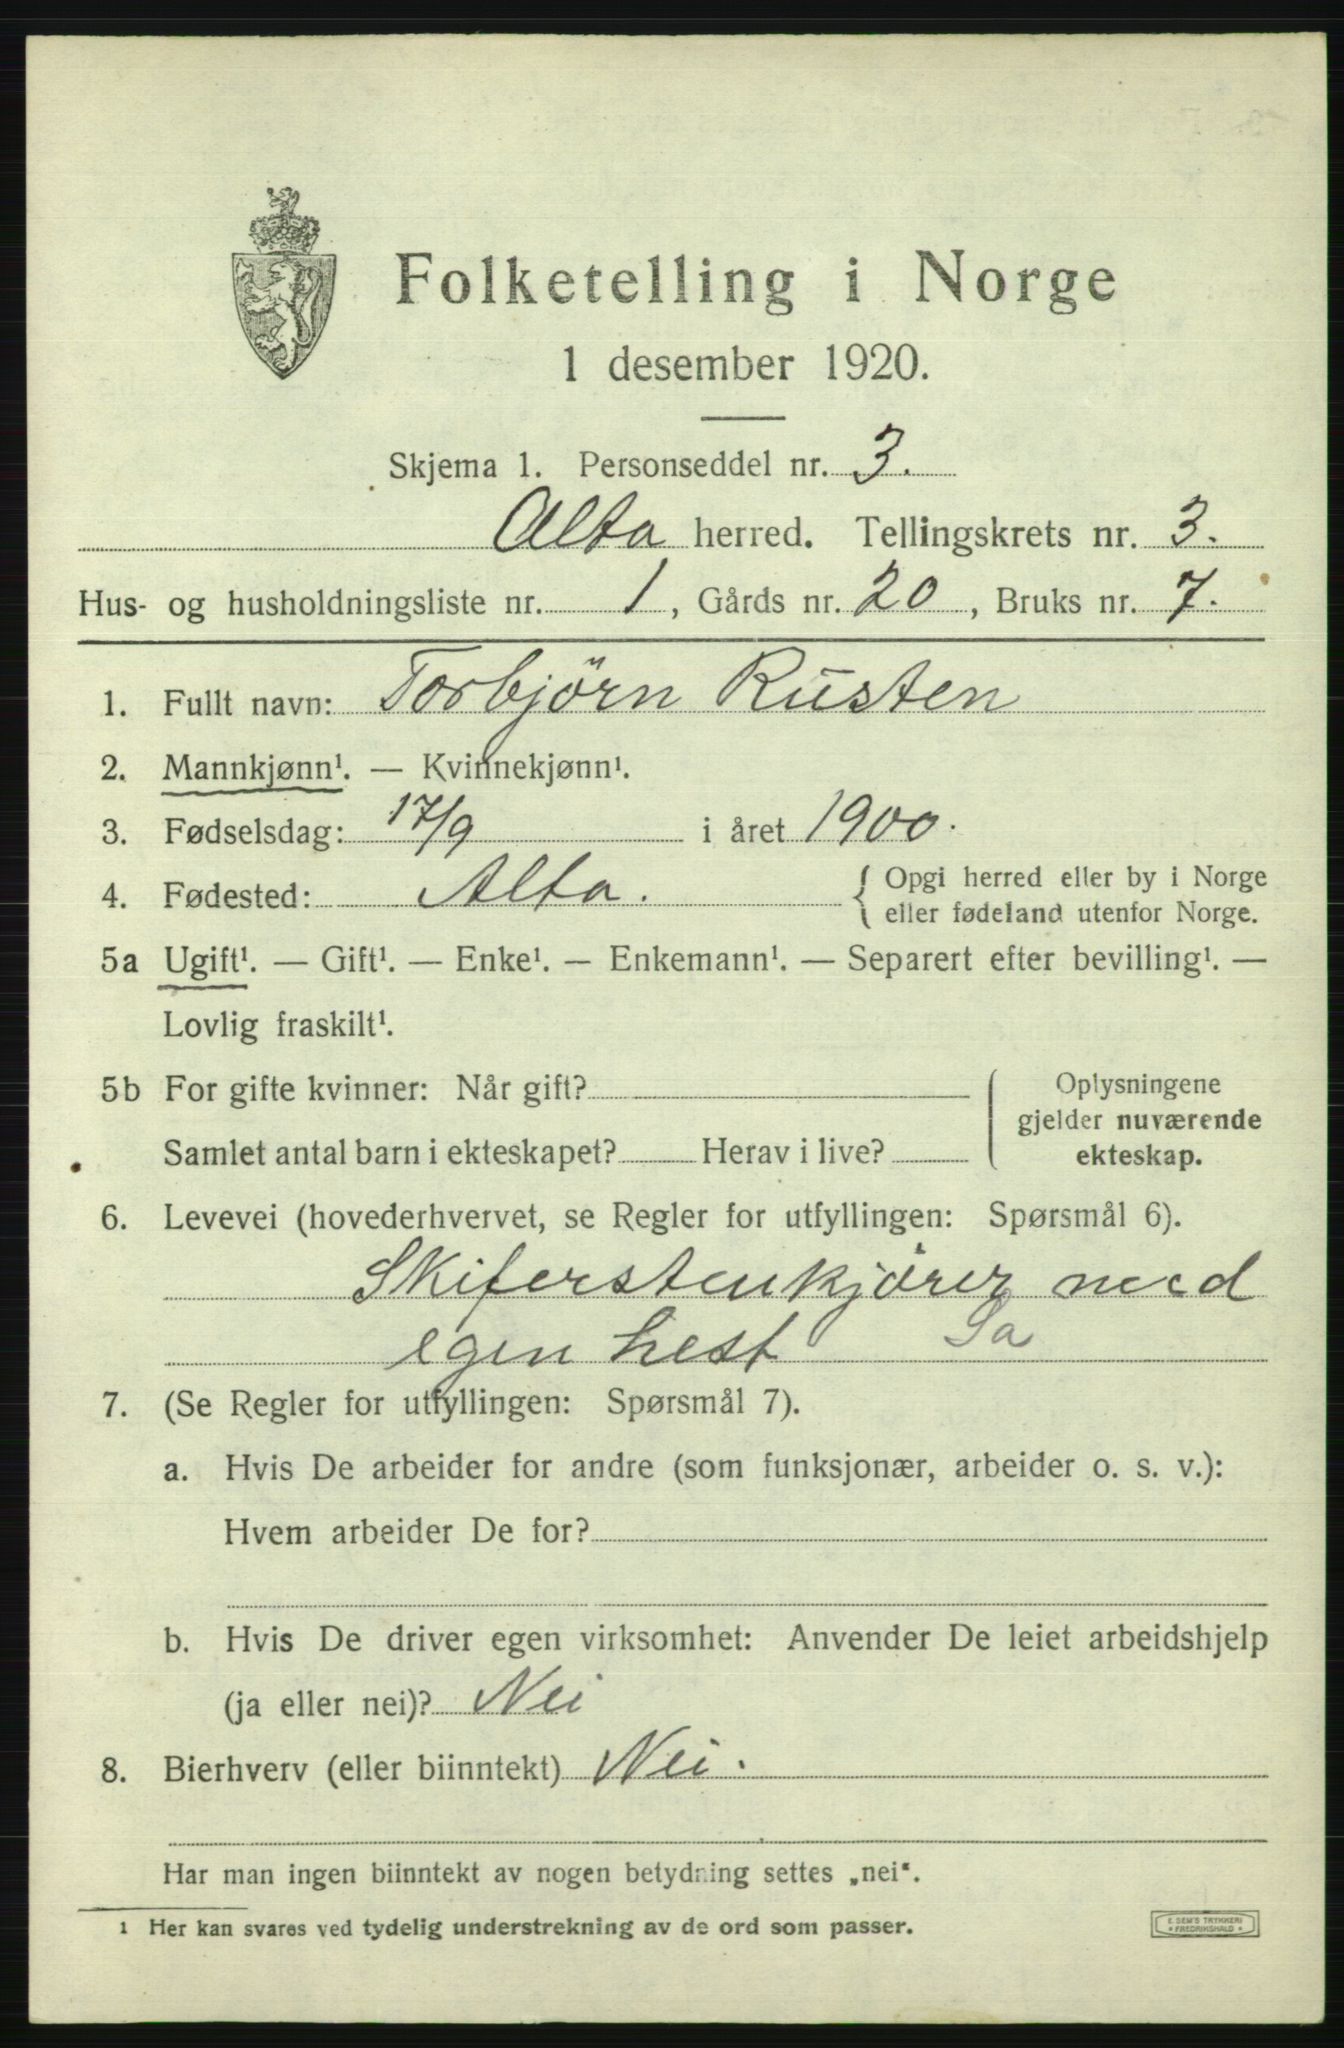 Folketelling i Norge
1 desember 1920.
Skjema 1. Personseddel nr. 3.
Alta herred. Tellingskrets nr. 3.
Hus- og husholdningsliste nr. 1, Gårds nr. 20, Bruks nr. 7.
1. Fullt navn: Torbjörn Rusten
2. Mannkjønn¹. — Kvinnekjønn¹.
3. Fødselsdag: 17/9 i året 1900.
4. Fødested: Alta. { Opgi herred eller by i Norge
eller fødeland utenfor Norge.
5a Ugift¹. — Gift¹. — Enke¹. — Enkemann¹. — Separert efter bevilling¹. —
Lovlig fraskilt¹.
5b For gifte kvinner: Når gift? Oplysningene
gjelder nuværende
Samlet antal barn i ekteskapet? Herav i live? ekteskap.
6. Levevei (hovederhvervet, se Regler for utfyllingen: Spørsmål 6).
Skiferstenkjörer med
egen hest Sa
7. (Se Regler for utfyllingen: Spørsmål 7).
a. Hvis De arbeider for andre (som funksjonær, arbeider o. s. v.):
Hvem arbeider De for?
b. Hvis De driver egen virksomhet: Anvender De leiet arbeidshjelp
(ja eller nei)? Nei
8. Bierhverv (eller biinntekt) Nei.
Har man ingen biinntekt av nogen betydning settes „nei“.
1 Her kan svares ved tydelig understrekning av de ord som passer.
E. SEM'S TRYKKERI
* FREDRIKSHALD *